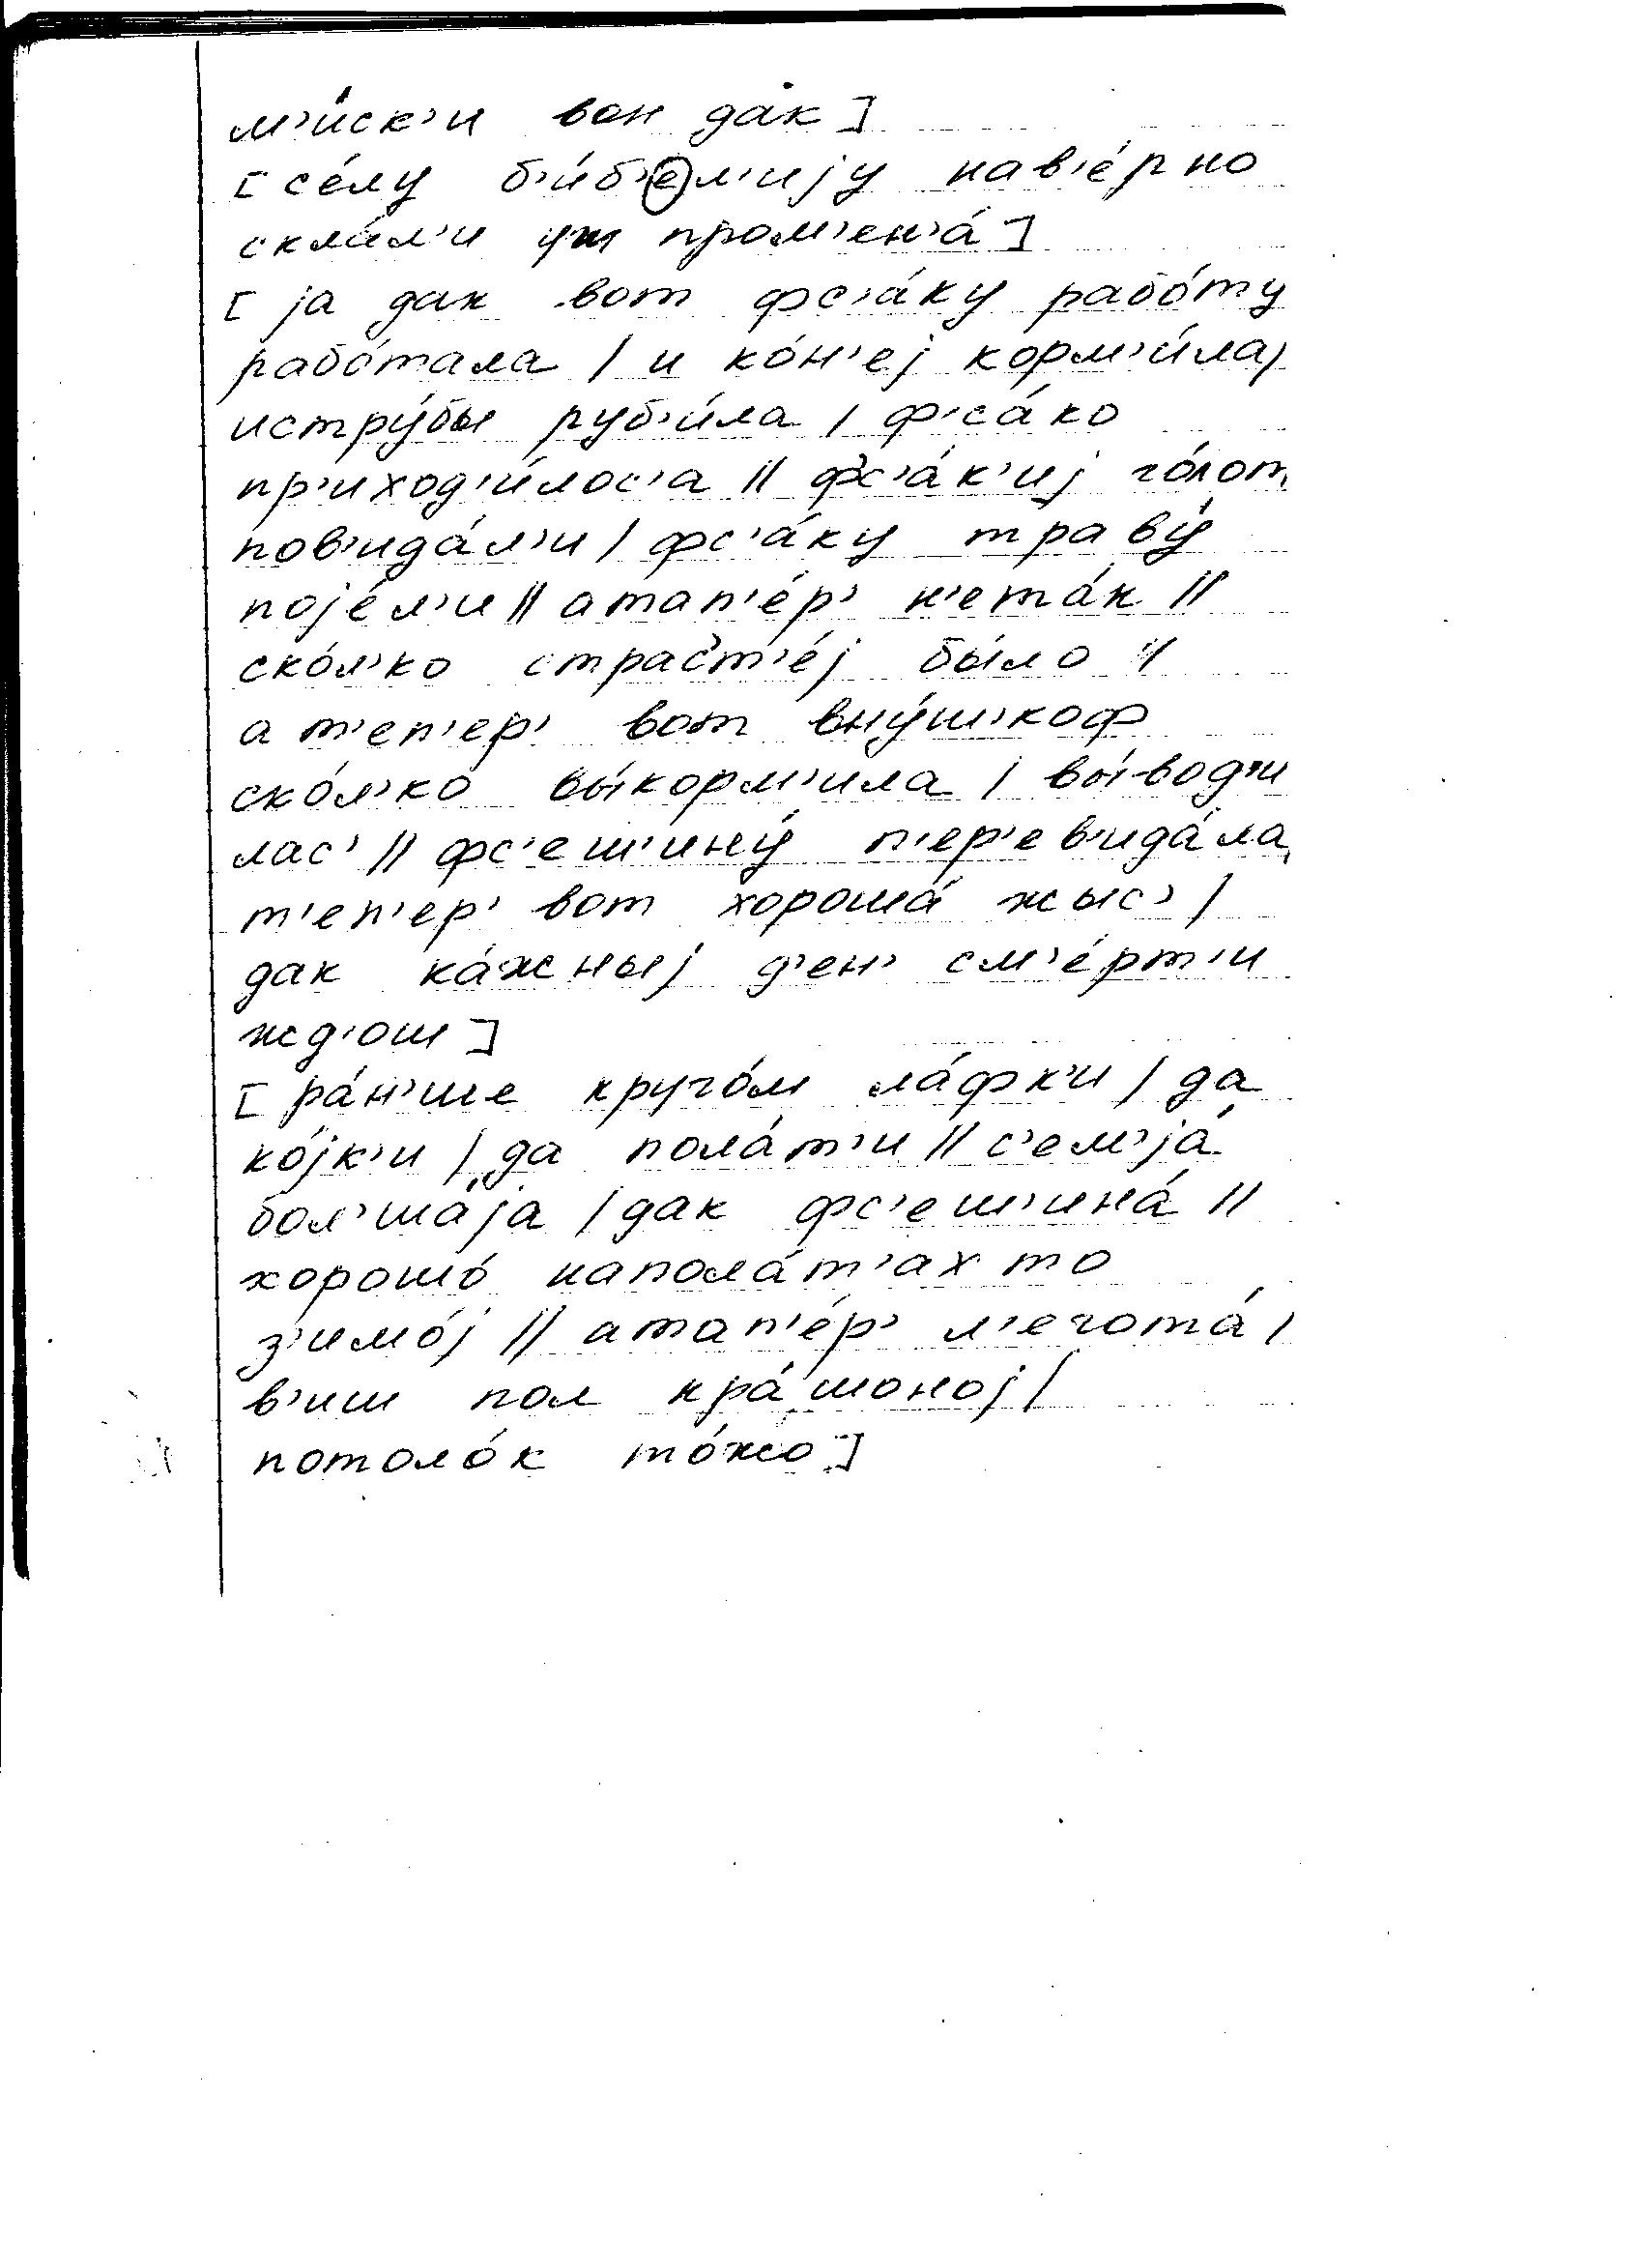 м'и́ск'и вон да́к]
[се́лу б'и́б'ел'ију нав'е́рно
скла́л'и уш пром'ен'а́]
[ја дак вот фс'а́ку рабо́ту
рабо́тала / и ко́н'еј корм'и́ла /
истру́бы руб'и́ла / ф'са́ко
пр'иход'и́лос'а // фс'а́к'иј го́лот
пов'ида́л'и / фс'а́ку траву́
поје́л'и // атап'е́р' н'ета́к //
ско́л'ко страст'е́ј бы́ло //
а т'еп'ер' вот вну́ш'коф
ско́л'ко вы́корм'ила / вы́вод'и
лас' // фс'еш'ину́ п'ер'ев'ида́ла,
т'еп'ер' вот хороша́ жыс' /
дак ка́жныј д'ен' см'е́рт'и
жд'ош]
[ра́н'ше круго́м ла́фк'и / да
ко́јк'и / да пола́т'и // с'ем'ја́
бол'ша́ја / дак фс'еш'ина́ //
хорошо́ напола́т'ах то
з'имо́ј // атап'е́р' л'егота́ /
в'иш пол кра́шоној /
потоло́к то́жо]